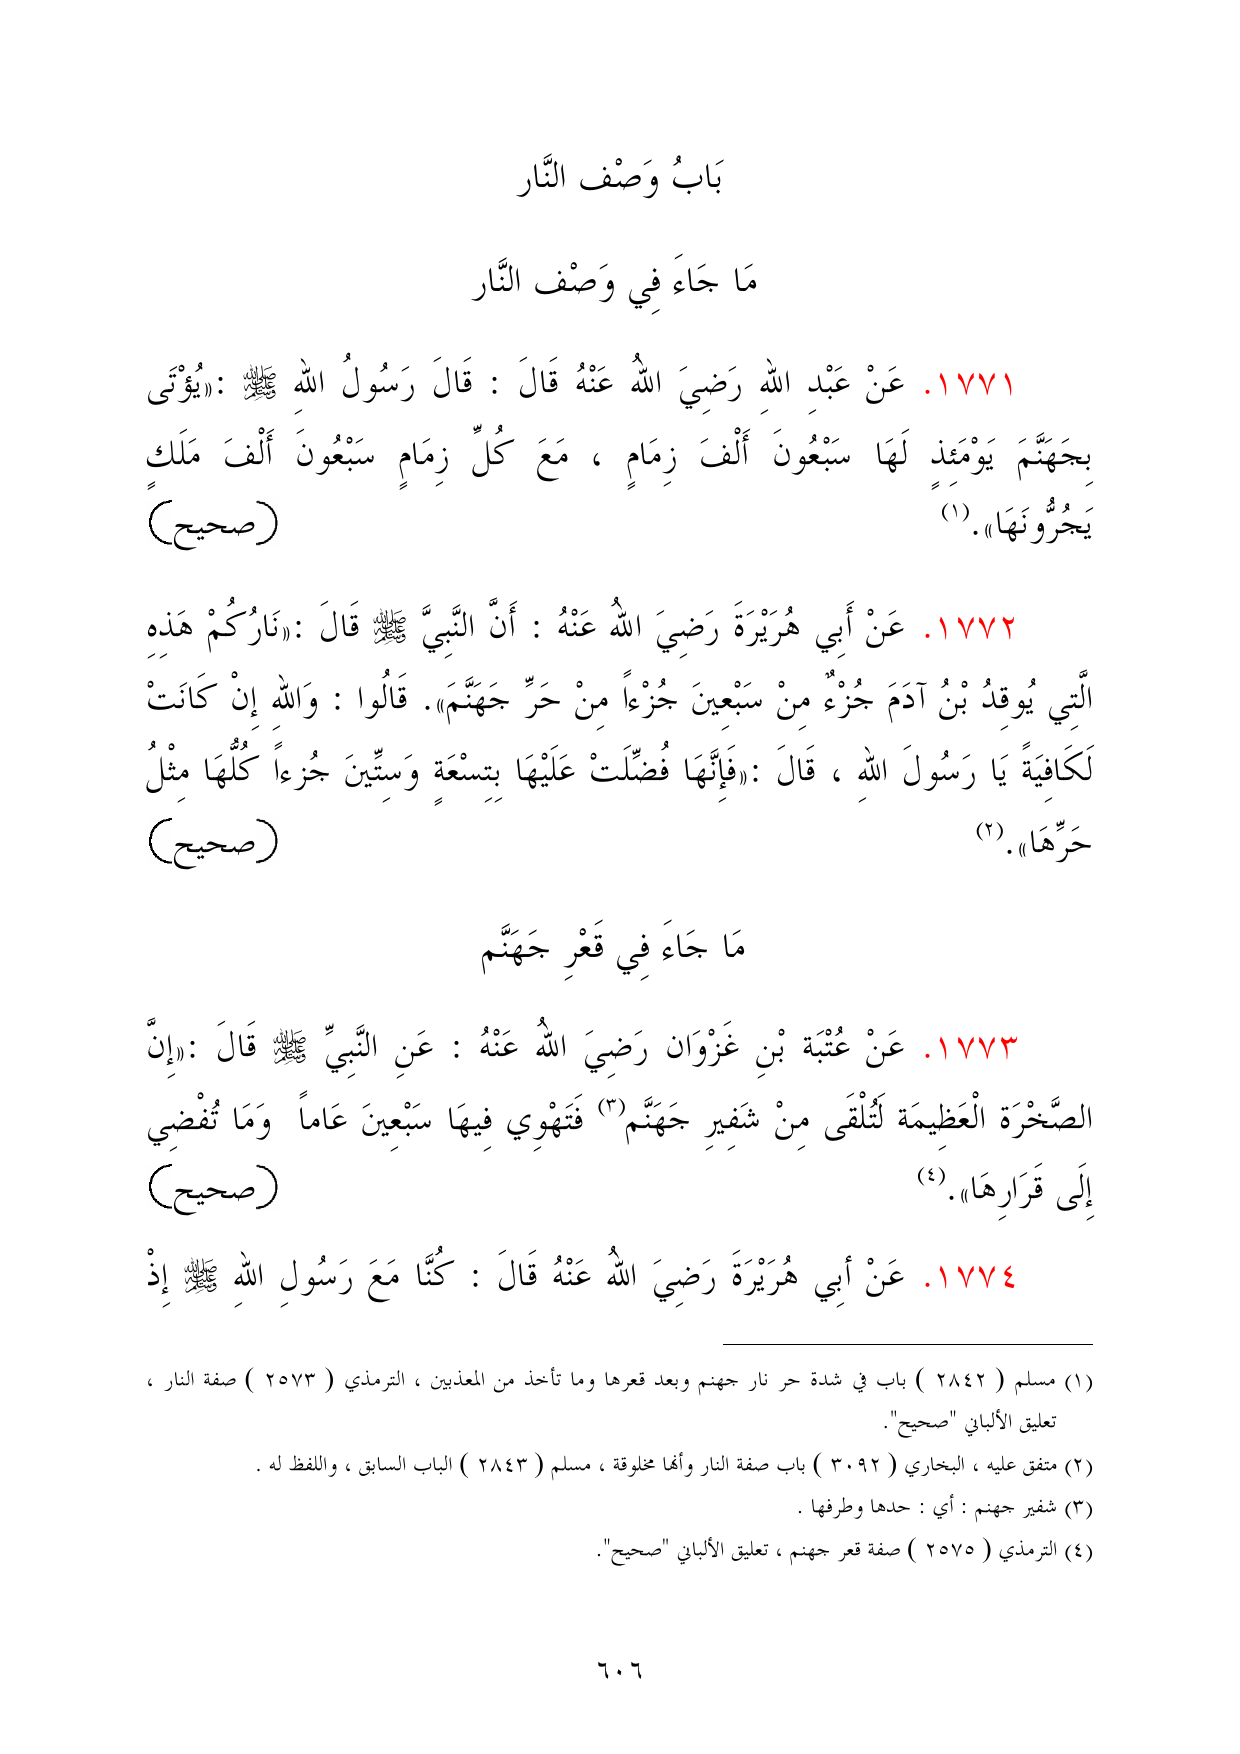 بَابُ وَصْف النَّار
مَا جَاءَ فِي وَصْف النَّار
١٧٧١. عَنْ عَبْدِ اللهِ رَضِيَ اللهُ عَنْهُ قَالَ : قَالَ رَسُولُ اللهِ ﷺ :«يُؤْتَى
بِجَهَنَّمَ يَوْمَئِذٍ لَهَا سَبْعُونَ أَلْفَ زِمَامٍ ، مَعَ كُلِّ زِمَامٍ سَبْعُونَ أَلْفَ مَلَكٍ
يَجُرُّونَهَا».(١) (صحيح)
١٧٧٢. عَنْ أَبِي هُرَيْرَةَ رَضِيَ اللهُ عَنْهُ : أَنَّ النَّبِيَّ ﷺ قَالَ :«نَارُكُمْ هَذِهِ
الَّتِي يُوقِدُ بْنُ آدَمَ جُزْءٌ مِنْ سَبْعِينَ جُزْءاً مِنْ حَرِّ جَهَنَّمَ». قَالُوا : وَاللهِ إِنْ كَانَتْ
لَكَافِيَةً يَا رَسُولَ اللهِ ، قَالَ :«فَإِنَّهَا فُضِّلَتْ عَلَيْهَا بِتِسْعَةٍ وَسِتِّينَ جُزءاً كُلُّهَا مِثْلُ
حَرِّهَا».(٢) (صحيح)
مَا جَاءَ فِي قَعْرِ جَهَنَّم
١٧٧٣. عَنْ عُتْبَة بْنِ غَزْوَان رَضِيَ اللهُ عَنْهُ : عَنِ النَّبِيِّ ﷺ قَالَ :«إِنَّ
الصَّخْرَة الْعَظِيمَة لَتُلْقَى مِنْ شَفِيرِ جَهَنَّم(٣) فَتَهْوِي فِيهَا سَبْعِينَ عَاماً وَمَا تُفْضِي
إِلَى قَرَارِهَا».(٤) (صحيح)
١٧٧٤. عَنْ أبِي هُرَيْرَةَ رَضِيَ اللهُ عَنْهُ قَالَ : كُنَّا مَعَ رَسُولِ اللهِ ﷺ إِذْ
(١) مسلم ( ٢٨٤٢ ) باب في شدة حر نار جهنم وبعد قعرها وما تأخذ من المعذبين ، الترمذي ( ٢٥٧٣ ) صفة النار ،
تعليق الألباني "صحيح".
(٢) متفق عليه ، البخاري ( ٣٠٩٢ ) باب صفة النار وأنها مخلوقة ، مسلم ( ٢٨٤٣ ) الباب السابق ، واللفظ له .
(٣) شفير جهنم : أي : حدها وطرفها .
(٤) الترمذي ( ٢٥٧٥ ) صفة قعر جهنم ، تعليق الألباني "صحيح".
٦٠٦